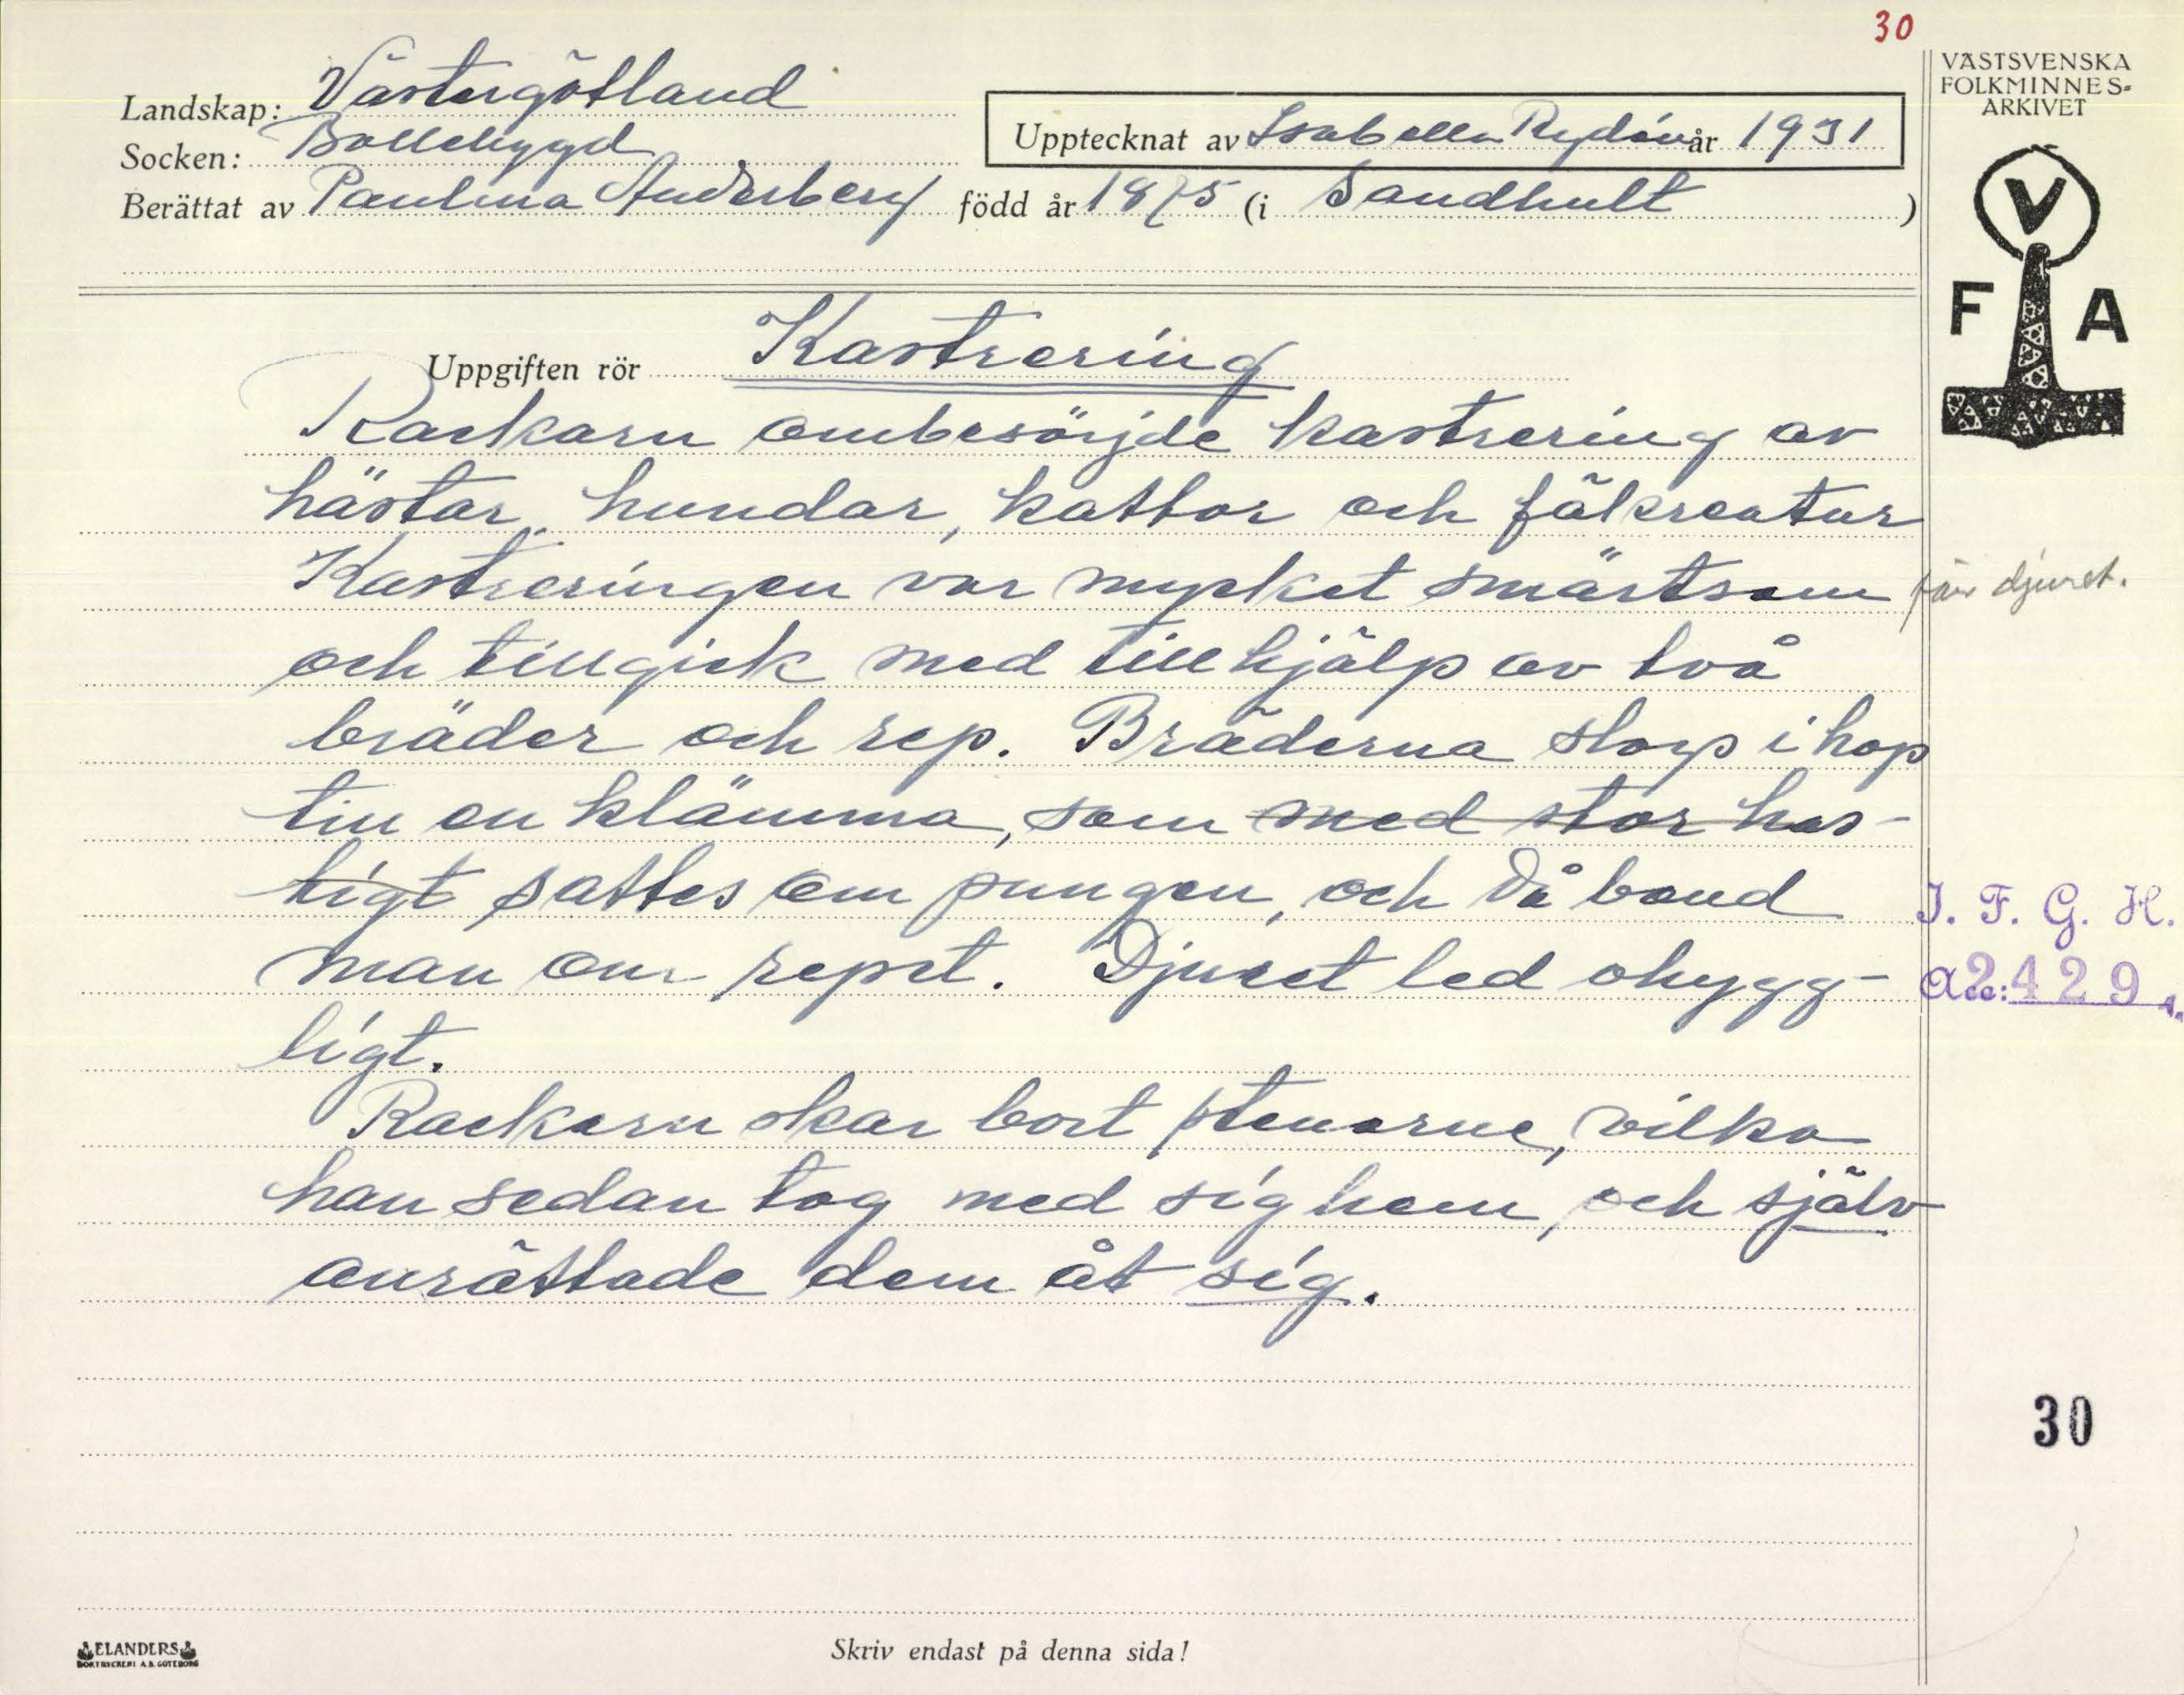 30
VÄSTSVENSKA
FOLKMINNES-
ARKIVET
Landskap: Västergötland
Socken: Bollebygd
Upptecknat av Isabella Rydén år 1931
Berättat av Paulina Anderberg född år 1875 (i Sandhult )
V
F A
Uppgiften rör Kastrering
Rackarn ombesörjde kastrering av
hästar, hundar, kattor och fäkreatur
Kastreringen var mycket smärtsam för djuret.
och tillgick med tillhjälp av två
bräder och rep. Bräderna slogs ihop
till en klämma, som med stor has-
tigt sattes om pungen, och då band
man om repet. Djuret led ohygg-
ligt.
I. F. G. H.
Acc: 2429
Rackarn skar bort stenarne, vilka
han sedan tog med sig hem, och själv
anrättade dem åt sig.
30
ELANDERS
BOKTRYCKERI A.B. GÖTEBORG
Skriv endast på denna sida!